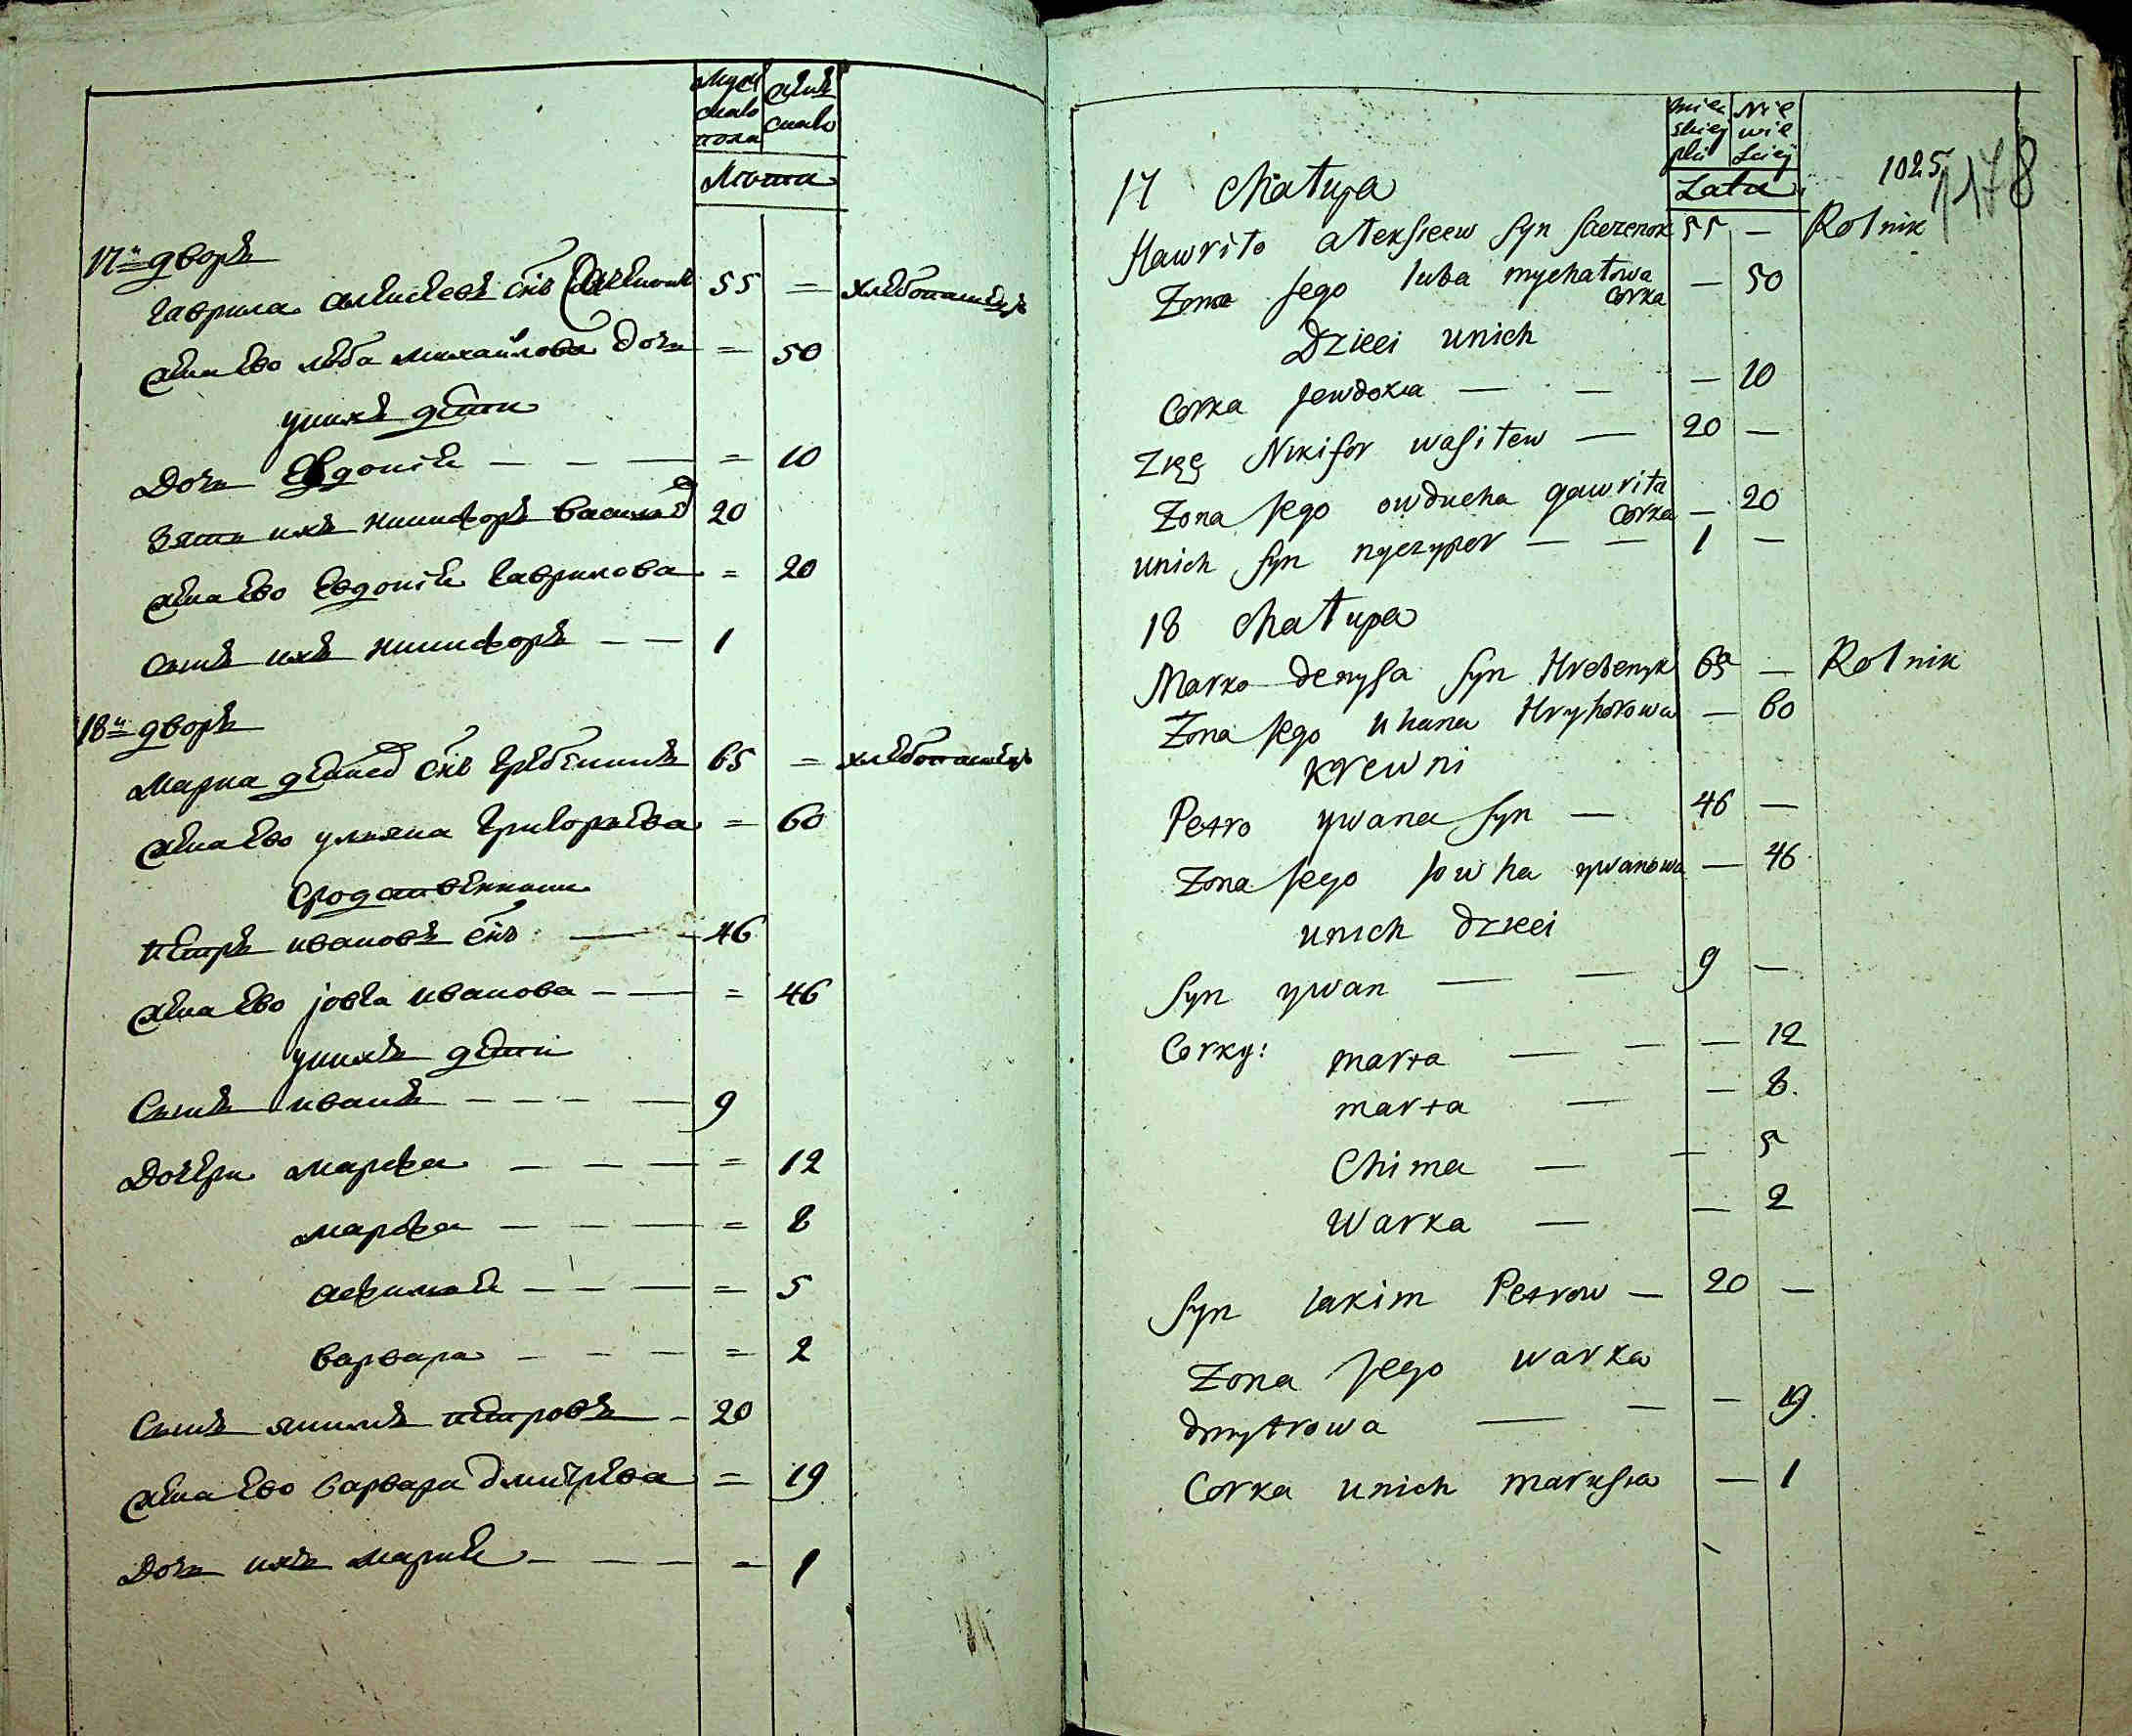 Муж
скаго
пола
Жен
скаго
Лѣта
17й дворъ
Гаврила Алексеевъ снъ 55 = хлебопашецъ
жена ево люба михайлова дочь = 50
унихъ дети
дочь Евдокия — — — = 10
Зять ихъ никифоръ василев 20
жена ево Евдокия Гаврилова = 20
сынъ ихъ никифоръ — — 1
18й дворъ
Марка денисов снъ Гребенникъ 65 = хлебопашецъ
жена ево ульяна Григорьева = 60
Сродственники
Петръ ивановъ снъ — 46
жена ево јовга иванова — — = 46
унихъ дети
Сынъ иванъ — — — — 9
Дочери марфа — — — = 12
марфа — — — = 8
афимия — — — = 5
варвара — — — = 2
Сынъ якимъ петровъ — 20
жена ево варвара дмитрева = 19
дочь ихъ мария — — — = 1
męz
skiej
płci
Nie
wie
sciej
Lata
1025
1178
17 Chałupa
Hawriło ałexieew syn 55 — Rolnik
Zona jego luba mychałowa
Corka — 50
Dzieci unich
Corka Jewdoxa — — — 10
Zięę Nikifor wasilew — 20 —
Zona jego owducha gawriła
Corka — 20
unich syn nyczypor — — 1 —
18 Chałupa
Marko denysa syn Hrebenyk 65 — Rolnik
Zona jego uhana Hryhorowa — 60
Krewni
Petro ywana syn — 46 —
Zona jego jowha ywanowa — 46
unich dzieci
syn ywan — — 9 —
Corky: marta — — — 12
marta — — 8.
Chima — — 5
Warka — — 2
syn Iakim Petrow — 20 —
Zona jego warka
dmytrowa — — — 19.
Corka unich marusia — 1